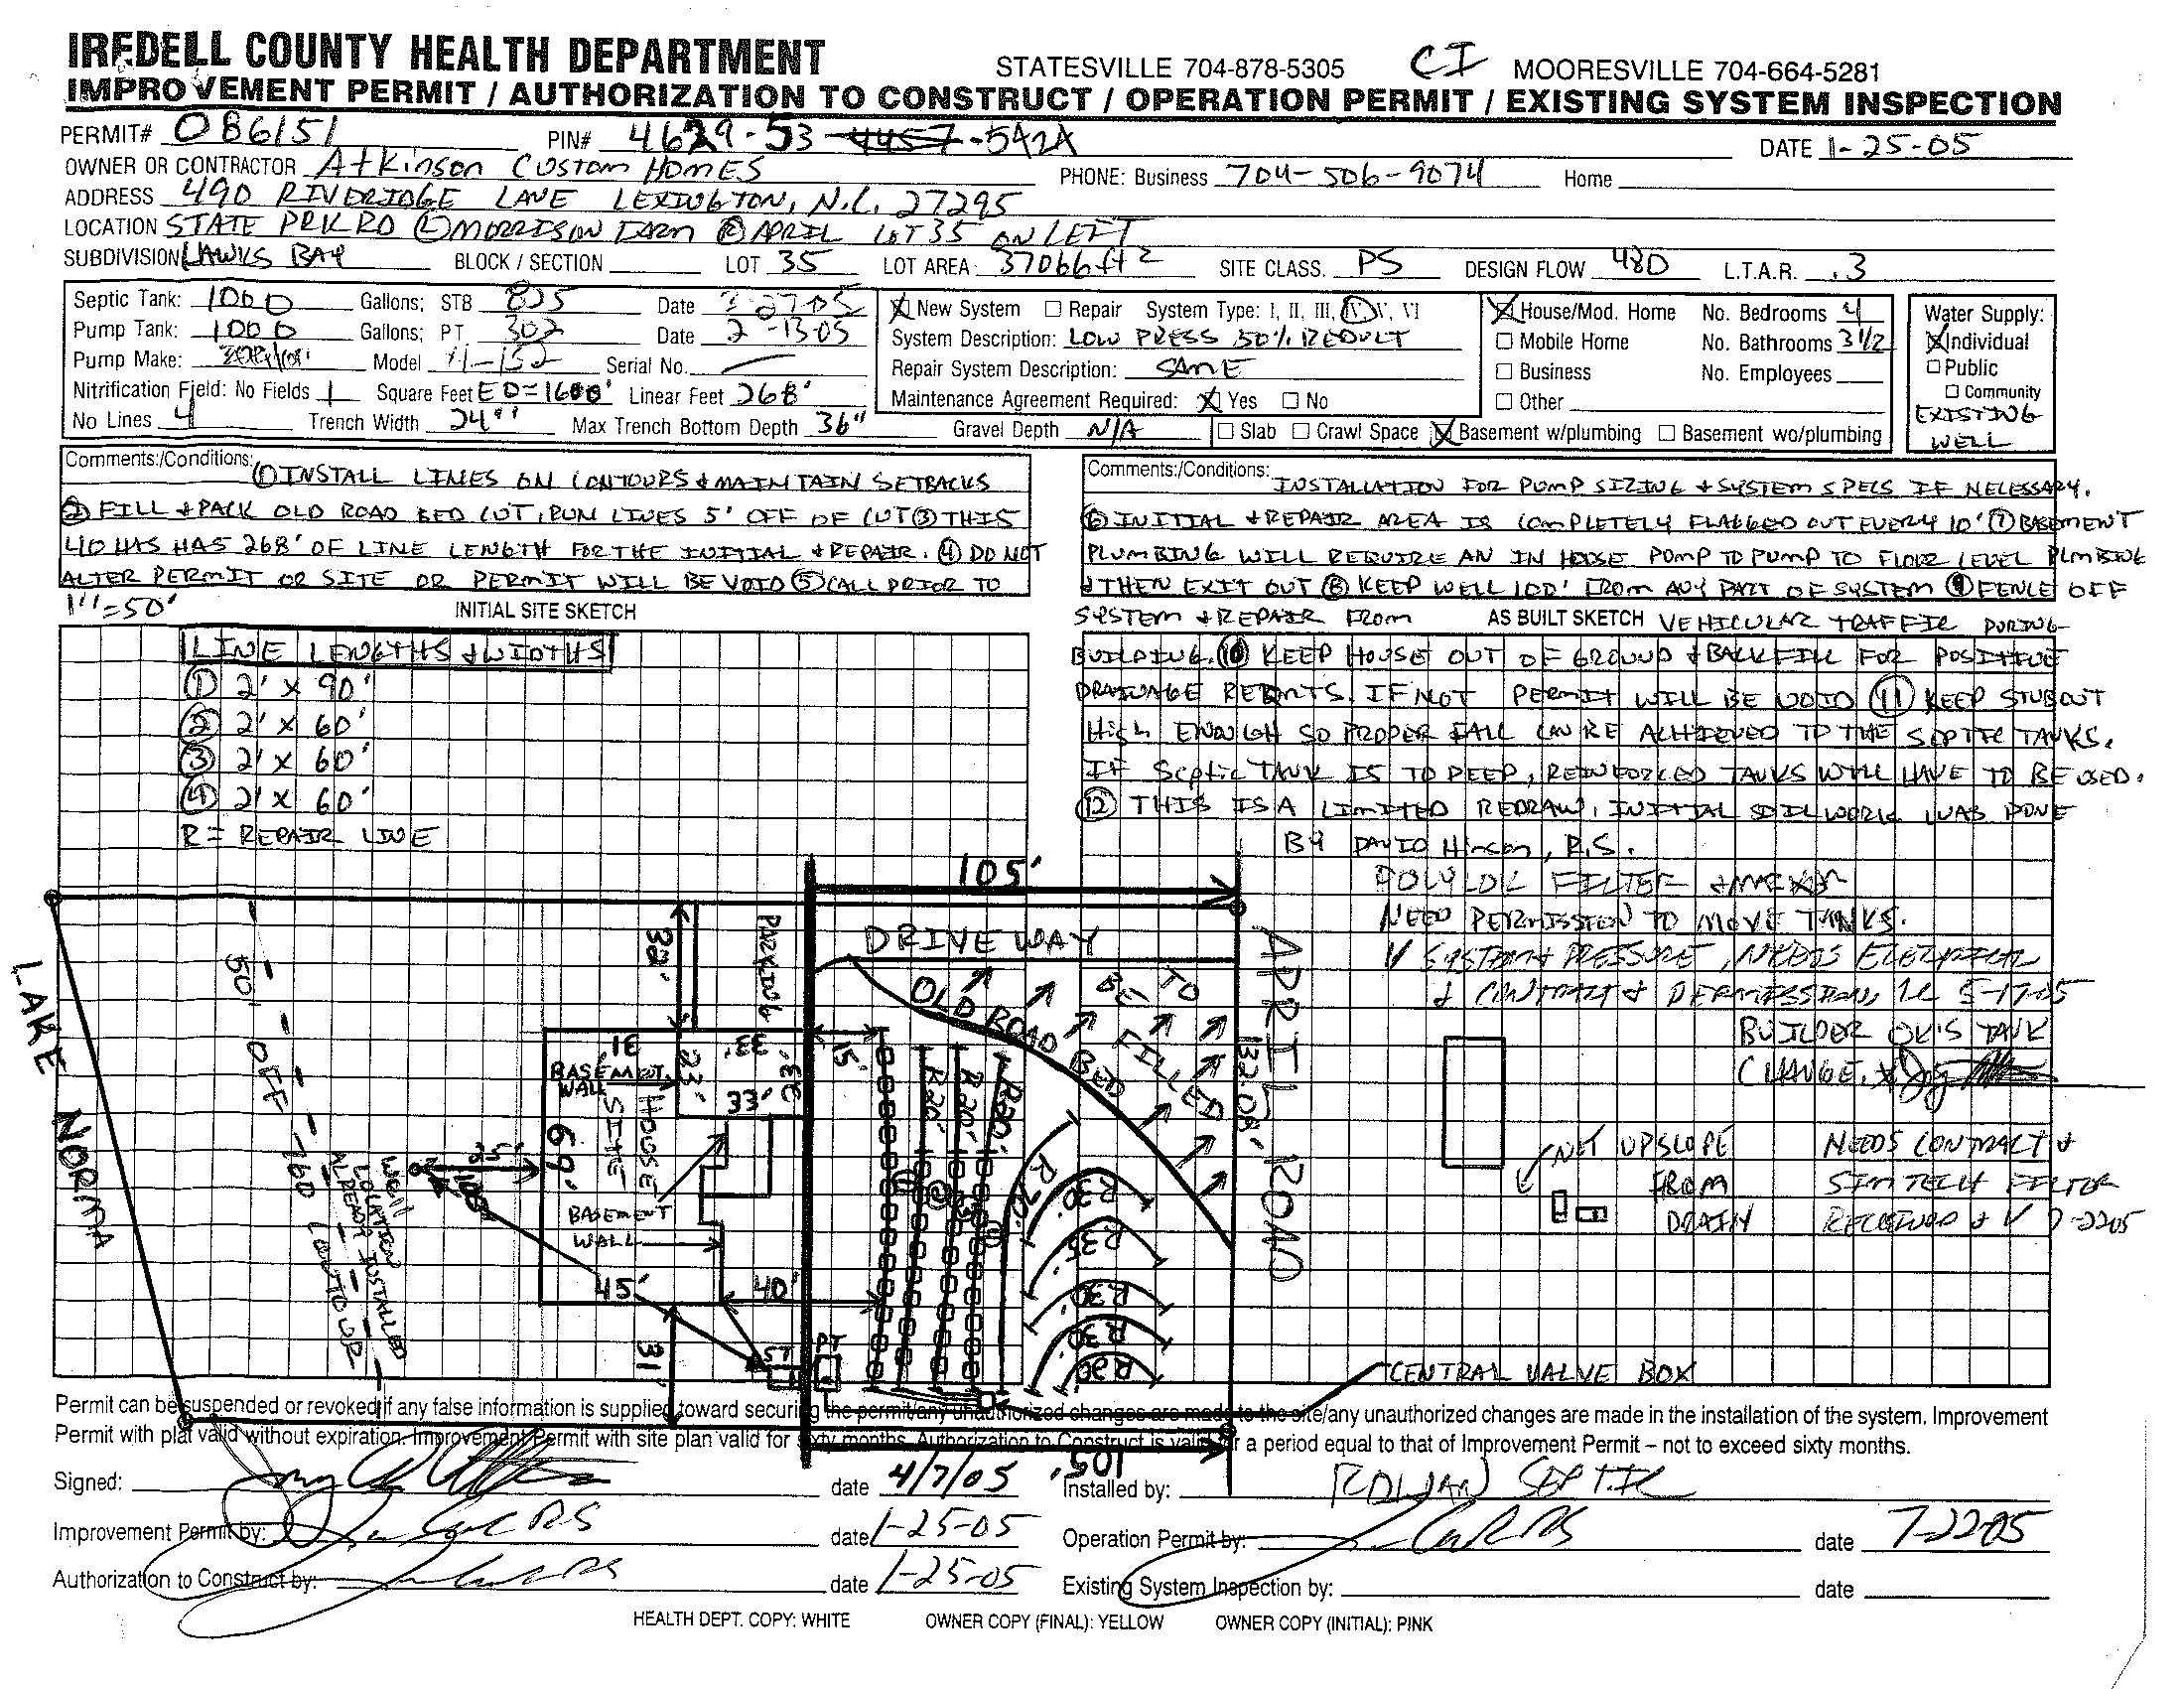 IREDELL COUNTY HEALTH DEPARTMENT STATESVILLE 704-878-5305 CI MOORESVILLE 704-664-5281
IMPROVEMENT PERMIT / AUTHORIZATION TO CONSTRUCT / OPERATION PERMIT / EXISTING SYSTEM INSPECTION
PERMIT# 086151 PIN# 4629-53-4457-5424 DATE 1-25-05
OWNER OR CONTRACTOR Atkinson CUSTOM HOMES
PHONE: Business 704-506-9074 Home
ADDRESS 490 RIVERIDGE LANE LEXINGTON, N.C. 27295
LOCATION STATE PRK RD Ⓛ MORRISON FARM Ⓡ APRIL LOT 35 ON LEFT
SUBDIVISION HAWKS BAY BLOCK / SECTION LOT 35 LOT AREA 37066 ft2 SITE CLASS. PS DESIGN FLOW 480 L.T.A.R. .3
Septic Tank: 1000 Gallons; STB 825 Date 2-27-05
Pump Tank: 1000 Gallons; PT 302 Date 2-13-05
Pump Make: Model Serial No.
Nitrification Field: No Fields 1 Square Feet ED=1600' Linear Feet 268'
No Lines 4 Trench Width 24" Max Trench Bottom Depth 36" Gravel Depth N/A
X New System □ Repair System Type: I, II, III, IV, V, VI
System Description: LOW PRESS 50% REDUCT
Repair System Description: SAME
Maintenance Agreement Required: X Yes □ No
□ Slab □ Crawl Space X Basement w/plumbing □ Basement wo/plumbing
X House/Mod. Home No. Bedrooms 4
□ Mobile Home No. Bathrooms 3 1/2
□ Business No. Employees
□ Other
Water Supply:
X Individual
□ Public
□ Community
EXISTING
WELL
Comments:/Conditions: ① INSTALL LINES ON CONTOURS & MAINTAIN SETBACKS
② FILL & PACK OLD ROAD BED CUT, RUN LINES 5' OFF OF CUT ③ THIS
LOT HAS 268' OF LINE LENGTH FOR THE INITIAL & REPAIR. ④ DO NOT
ALTER PERMIT OR SITE OR PERMIT WILL BE VOID ⑤ CALL PRIOR TO
Comments:/Conditions: INSTALLATION FOR PUMP SIZING & SYSTEM SPECS IF NECESSARY.
⑥ INITIAL & REPAIR AREA IS COMPLETELY FLAGGED OUT EVERY 10' ⑦ BASEMENT
PLUMBING WILL REQUIRE AN IN HOUSE PUMP TO PUMP TO FLOOR LEVEL PLMBING
& THEN EXIT OUT ⑧ KEEP WELL 100' FROM ANY PART OF SYSTEM ⑨ FENCE OFF
SYSTEM & REPAIR FROM AS BUILT SKETCH VEHICULAR TRAFFIC DURING
BUILDING. ⑩ KEEP HOUSE OUT OF GROUND & BACKFILL FOR POSITIVE
DRAINAGE REQMTS. IF NOT PERMIT WILL BE VOID ⑪ KEEP STUBOUT
High ENOUGH SO PROPER FALL CAN BE ACHIEVED TO THE SEPTIC TANKS.
IF Septic TANK IS TO DEEP, REINFORCED TANKS WILL HAVE TO BE USED.
⑫ THIS IS A LIMITED REDRAW, INITIAL SOIL WORK WAS DONE
BY DAVID Hinson, R.S.
POLYLOK FILTER
NEED PERMISSION TO MOVE TANKS.
V SYSTEM & PRESSURE, NEEDS ELECTRICAL
& CONTRACT & PERMISSION, 5-17-05
BUILDER OK'S TANK
CHANGE.
NOT UPSLOPE
FROM
DRAIN
NEEDS CONTRACT &
SIMTECH FILTER
RECEIVED & V 7-22-05
1"=50' INITIAL SITE SKETCH
LINE LENGTHS & WIDTHS
① 2' X 90'
② 2' X 60'
③ 2' X 60'
④ 2' X 60'
R = REPAIR LINE
105'
DRIVEWAY
OLD ROAD BED
TO
BE
FILLED
APRIL ROAD
132.08'
PARKING
32'
15'
31'
33'
33'
23'
33'
BASEMENT
WALL
HOUSE
SITE
69'
BASEMENT
WALL
45'
40'
31'
ST
PT
R20'
R20'
R20'
R20'
R30'
R35'
R30'
R30'
R20'
①
②
③
④
LAKE NORMAN
50' OFF 760 CONTOUR
WELL
LOCATION
ALREADY INSTALLED
CENTRAL VALVE BOX
105'
Permit can be suspended or revoked if any false information is supplied toward securing the permit/any unauthorized changes are made to the site/any unauthorized changes are made in the installation of the system. Improvement
Permit with plat valid without expiration. Improvement Permit with site plan valid for sixty months. Authorization to Construct is valid for a period equal to that of Improvement Permit – not to exceed sixty months.
Signed: date 4/7/05 Installed by: SEPTIC
Improvement Permit by: RS date 1-25-05 Operation Permit by: RS date 7-22-05
Authorization to Construct by: RS date 1-25-05 Existing System Inspection by: date
HEALTH DEPT. COPY: WHITE OWNER COPY (FINAL): YELLOW OWNER COPY (INITIAL): PINK